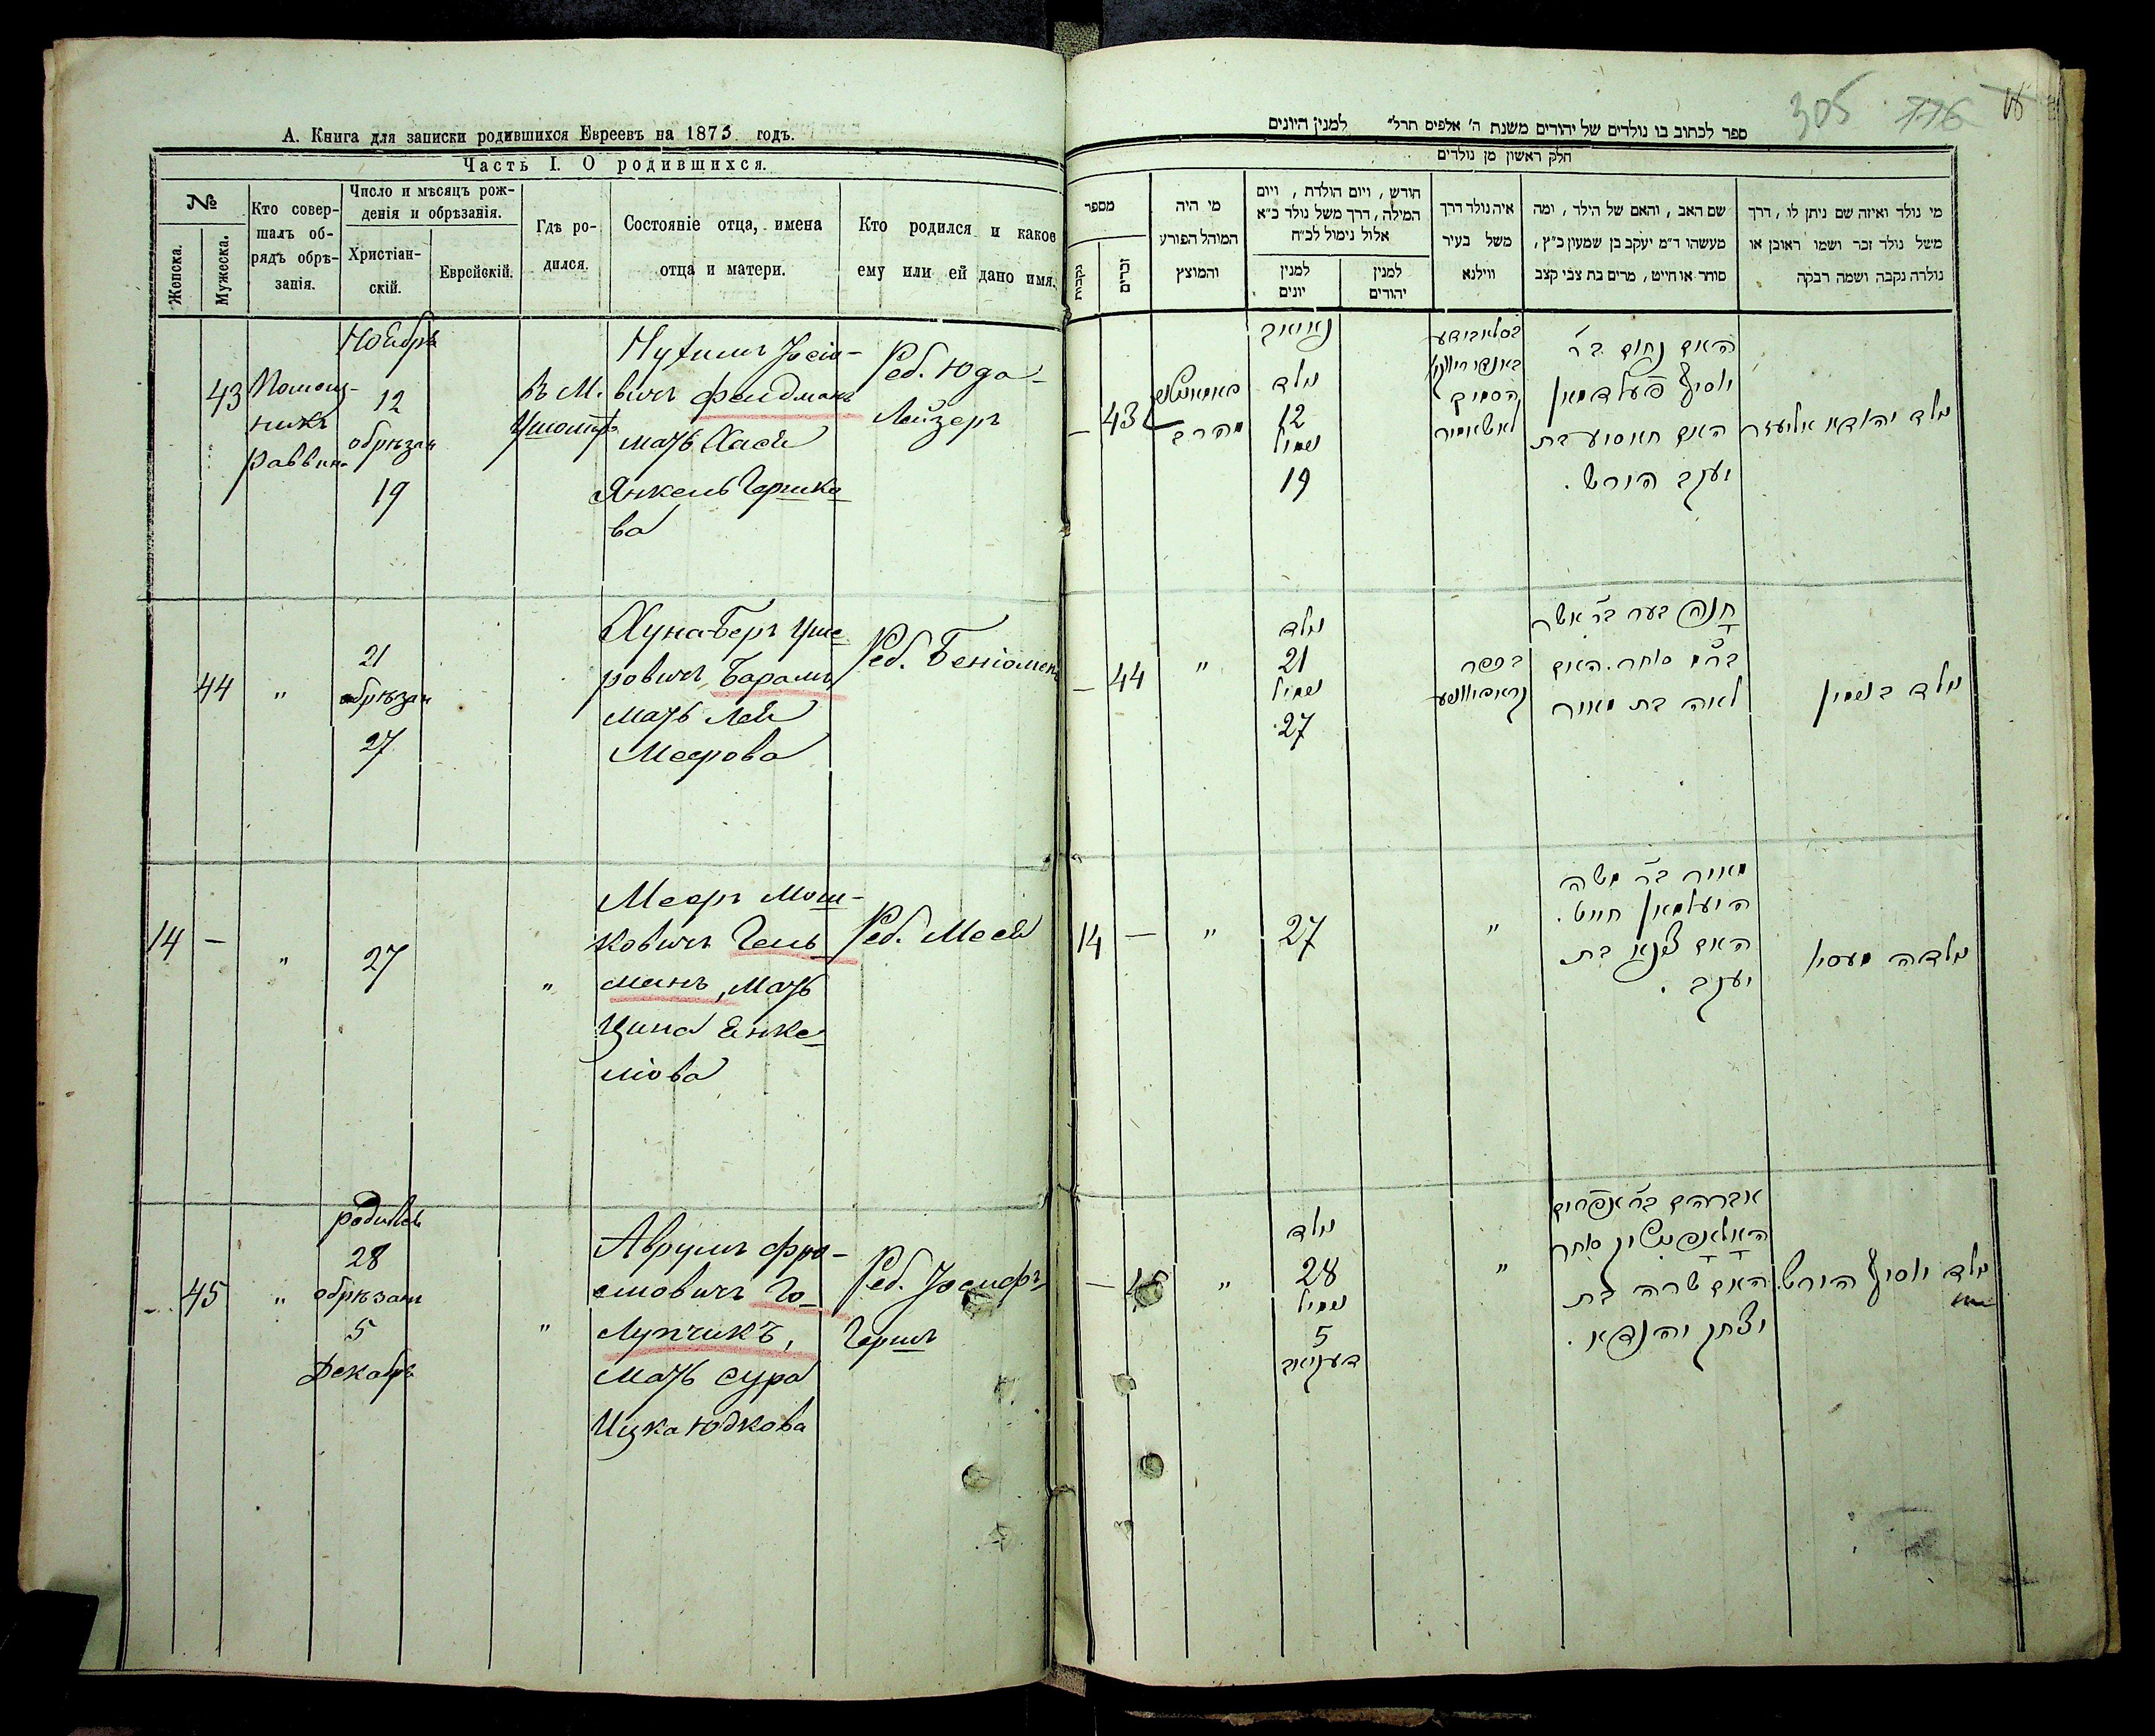 А. Книга для записки родившихся Евреевъ на 1873 годъ.
Часть I. О родившихся.
№
Женска.
Мужеска.
Кто совер-
шалъ об-
рядъ обрѣ-
занія.
Число и мѣсяцъ рож-
денія и обрѣзанія.
Христіан-
скій.
Еврейскій.
Гдѣ ро-
дился.
Состояніе отца, имена
отца и матери.
Кто родился и какое
ему или ей дано имя.
43
Помощ-
никъ
Раввина
Ноябрь
12
обрѣзан
19
въ М.
Нухимъ Іосіо-
вичъ Фельдманъ
мать Хася
Янкель Гершко
ва
Реб. Юда-
Лейзеръ
44
"
21
обрѣзан
27
Хуна-Беръ Уше
ровичъ, Барамъ,
мать Лея
Меерова
Реб. Беніоминъ
14
—
"
27
"
Мееръ Мош-
ковичъ Гель
манъ, мать
Ципа Янке
лiова
Реб. Мася
45
"
родился
28
обрѣзан
5
Декабрь
"
Аврумъ Фро-
имовичъ Го-
лупчикъ,
мать Сура
Ицка Юдкова
Реб. Іосифъ
Гершъ
305 776
ספר לכתוב בו נולדים של יהודים משנת ה' אלפים תרל" למנין היונים
חלק ראשון מן נולדים
מספר
נקבות
זכרים
מי היה
המוהל הפורע
והמוצץ
חודש, ויום הולדת, ויום
המילה, דרך משל נולד כ"א
אלול נימול לכ"ח
למנין
יונים
למנין
יהודים
איה נולד דרך
משל בעיר
ווילנא
שם האב, והאם של הילד, ומה
מעשהו ד"מ יעקב בן שמעון כ"ץ,
סוחר או חייט, מרים בת צבי קצב
מי נולד ואיזה שם ניתן לו, דרך
משל נולד זכר ושמו ראובן או
נולדה נקבה ושמה רבקה
43
מהרב
נאיאב
נולד
12
נימול
19
האם נחום ב"ר
יוסיף פעלדמאן
האם חאסיע בת
יעקב הירש.
נולד יהודא אליעזר
44
"
נולד
21
נימול
27
בכפר
חנה בער ב"ר אשר
ברם סוחר. האם
לאה בת מאיר
נולד בנימין
14
—
"
27
"
מאיר ב"ר משה
העלמאן חייט.
האם ציפא בת
יעקב.
נולדה מעסי
45
"
נולד
28
נימול
5
דעקאב
"
אברהם ב"ר אפרים
סוחר
האם שרה בת
יצחק יהודא.
נולד יוסיף הירש.